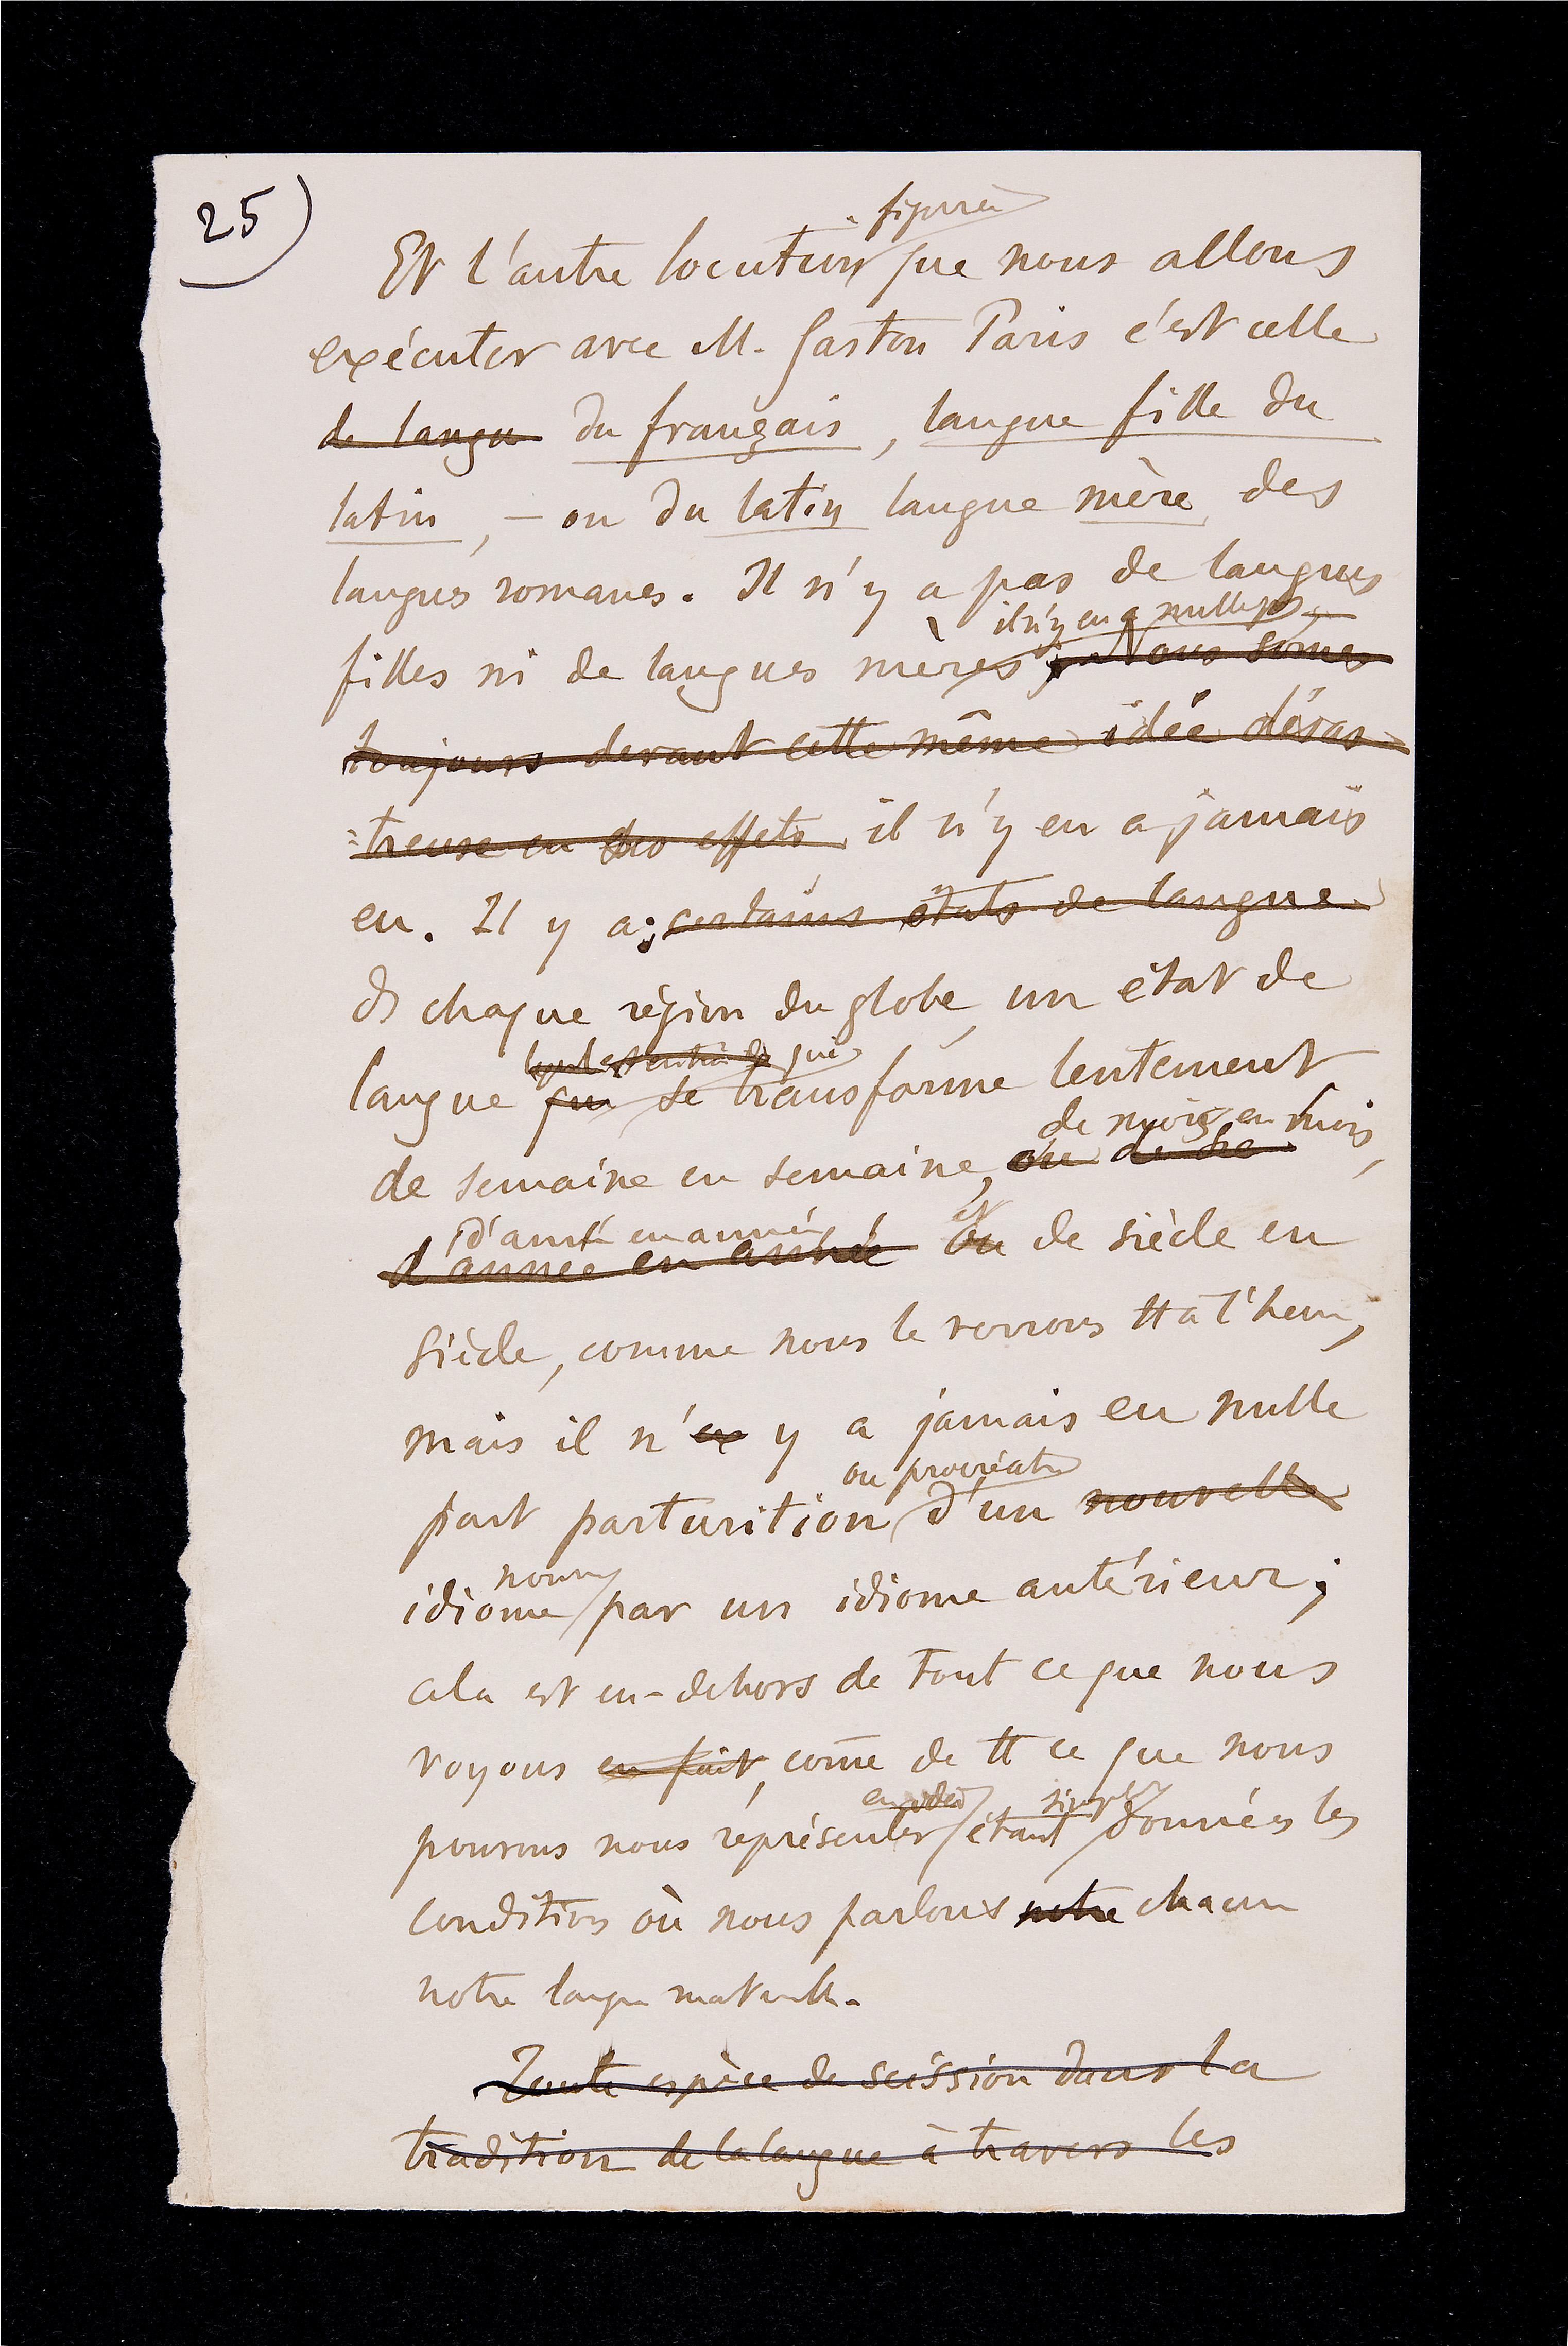 25)
figurée
Et l'autre locution que nous allons
exécuter avec M. Gaston Paris c'est celle
de langu du français, langue fille du
latin, – ou du latin langue mère des
langues romanes. Il n'y a pas de langues
il n'y en a nulle part,
filles ni de langues mères Nous somes
toujours devant cette même idée désas-
treuse en ses effets il n'y en a jamais
eu. Il y a: certains états de langue
ds chaque région du globe un état de
qui
langue qui se transforme lentement
de mois en mois,
de semaine en semaine, ou de siè
d'année en année et
d'année en année ou de siècle en
siècle, comme nous le verrons tt à l'heure,
mais il n'en y a jamais eu nulle
ou procréatn
part parturition d'un nouvelle
nouv
idiome par un idiome antérieur;
cela est en-dehors de tout ce que nous
voyons en fait, come de tt ce que nous
en idée simplt
pouvons nous représenter étant données les
conditions où nous parlons notre chacun
notre langue maternelle.
Toute espèce de scission dans la
tradition de la langue à travers les